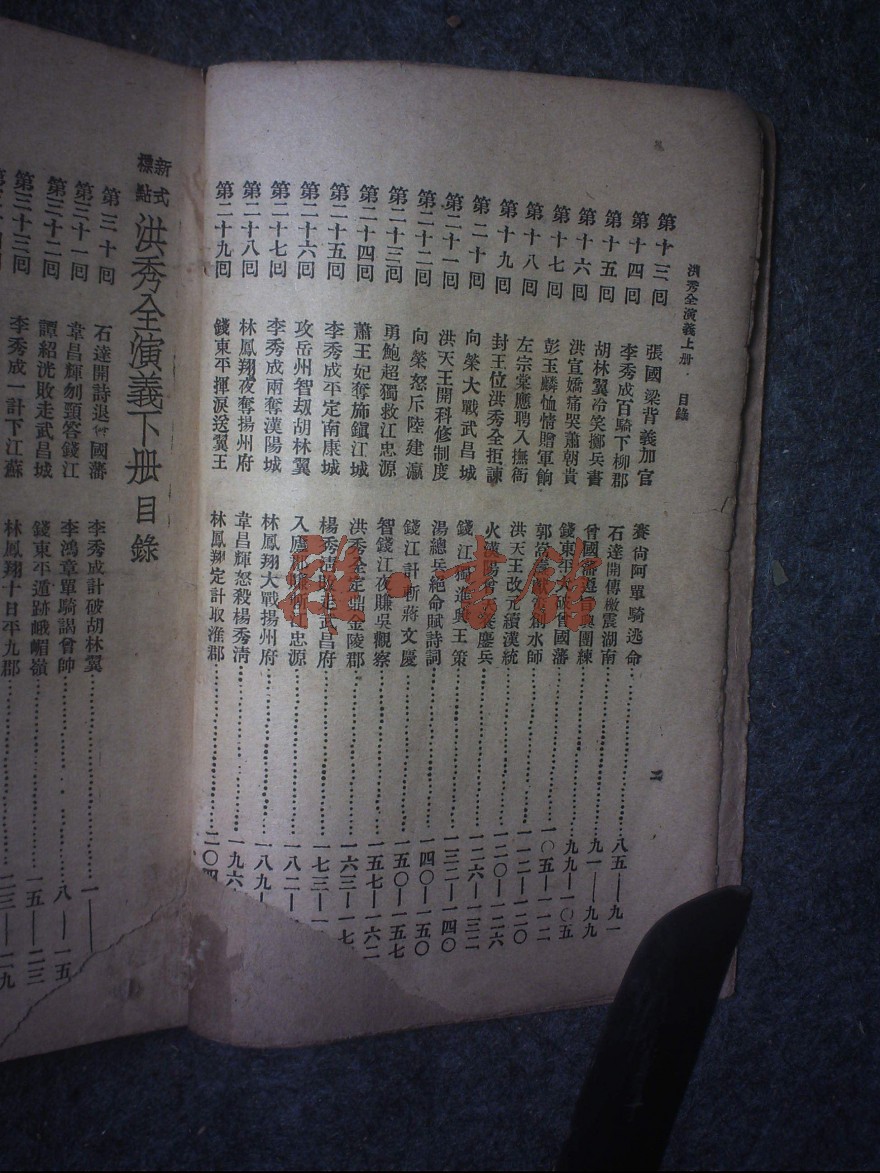 洪秀全演義上册 目錄
二
第十三囘 張國梁背義加官 賽尙阿單騎逃命 八五—九一
第十四囘 李秀成百騎下柳郡 石達開傳檄震湖南 九一—九九
第十五囘 胡林翼冷笑擲兵書 曾國藩 興團練 九九—一〇五
第十六囘 洪宣嬌痛哭蕭朝貴 錢東平大破曾國藩 一〇五—一一二
第十七囘 彭玉麟恤情贈軍餉 郭嵩燾 創水師 一一二—一二〇
第十八囘 左宗棠應聘入撫衙 洪天王改元續漢統 一二〇—一二六
第十九囘 封王位洪秀全拒諫 火漢陽 鏖兵 一二六—一三二
第二十囘 向榮大戰武昌城 錢江獨進興王策 一三二—一四〇
第二十一囘 洪天王開科修制度 湯總兵絕命賦詩詞 一四〇—一五〇
第二十二囘 向榮怒斥陸建瀛 錢江計斬蔣文慶 一五〇—一五七
第二十三囘 勇鮑超獨救江忠源 智錢江夜賺吳觀察 一五七—一六二
第二十四囘 蕭王妃奪旆鎭江城 洪秀全定鼎金陵郡 一六三—一七
第二十五囘 李秀成平定南康城 楊秀淸敗走武昌府 一七三—一
第二十六囘 攻岳州智刼胡林翼 入廬郡 忠源 一八二—
第二十七囘 李秀成兩奪漢陽城 林鳳翔大戰揚州府 一八九—
第二十八囘 林鳳翔夜奪揚州府 韋昌輝怒殺楊秀清 一九六
第二十九囘 錢東平揮淚送翼王 林鳳翔定計取淮郡 二〇四
新式標點 洪秀全演義下册 目錄
第三十囘 石達開詩退 國藩 李秀成計破胡林翼 一—
第三十一囘 韋昌輝刎頸答錢江 李鴻章單騎謁曾帥 八—一五
第三十二囘 譚紹洸敗走武昌城 錢東平遁跡峨嵋嶺 一五—二三
第三十三囘 李秀成一計下江蘇 林鳳翔十日平九郡 二三—二九